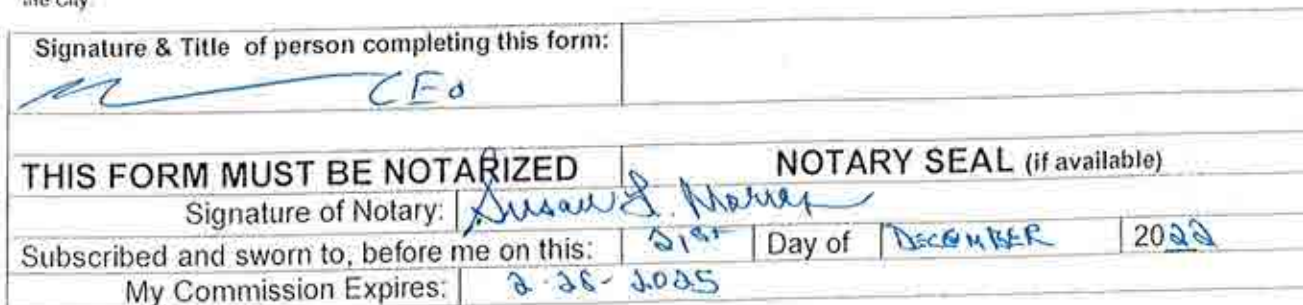 the City.
Signature & Title of person completing this form:
CEO
THIS FORM MUST BE NOTARIZED
NOTARY SEAL (if available)
Signature of Notary: Susan L.
Subscribed and sworn to, before me on this: 21st Day of DECEMBER 2022
My Commission Expires: 2-28-2025